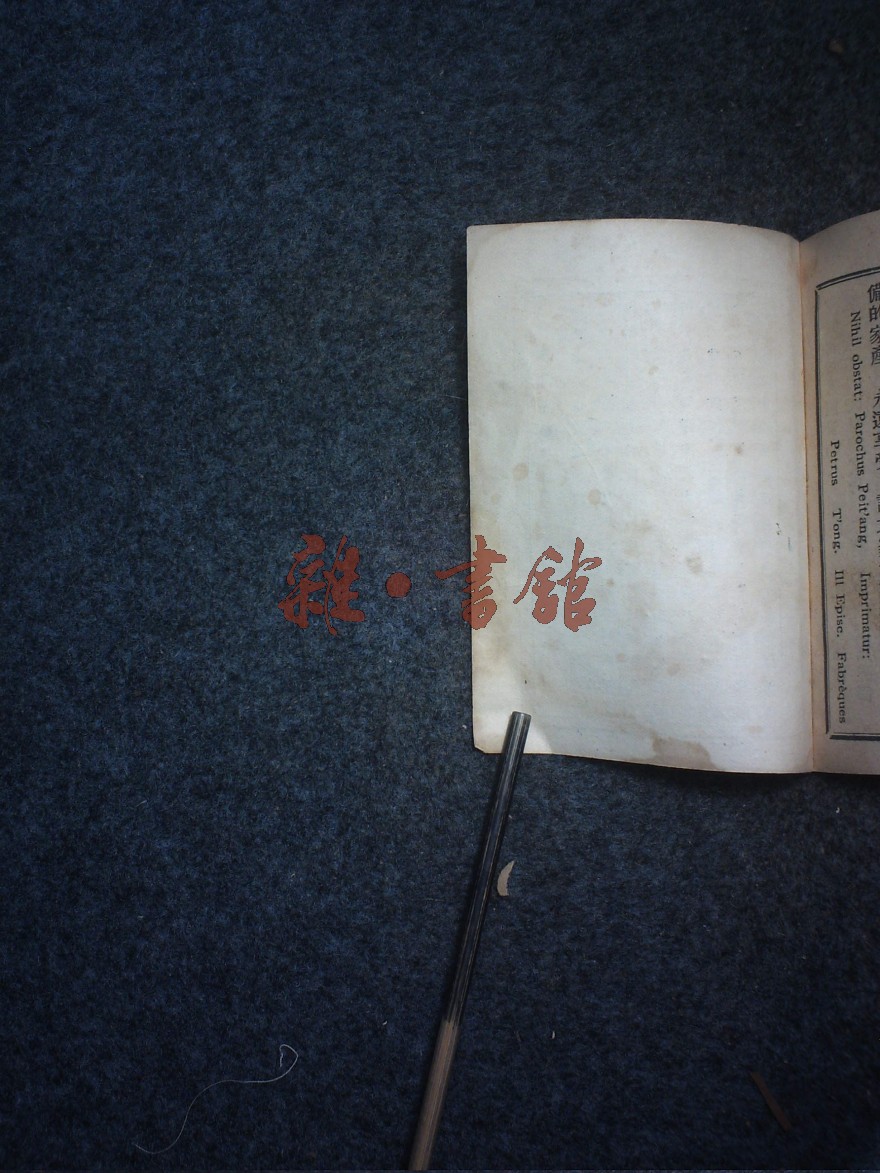 備的家產
Nihil obstat: Parochus Peit'ang, Imprimatur:
Petrus T'ong. Ill Episc. Fabrèques
雜·書館